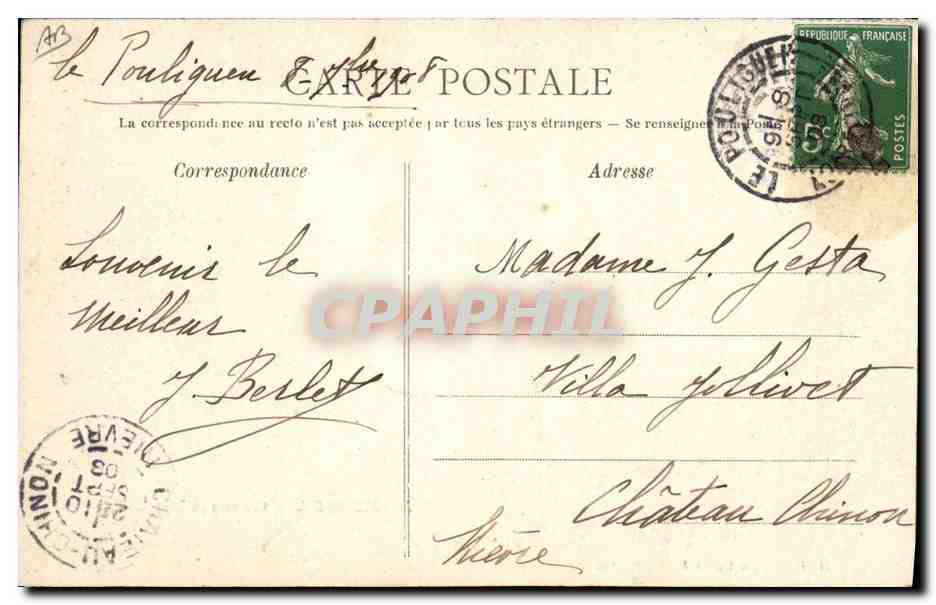 AB
le Pouliguen 8-7bre 08
CARTE POSTALE
La correspondance au recto n'est pas acceptée par tous les pays étrangers — Se renseigner à la Poste
Correspondance
Adresse
RÉPUBLIQUE FRANÇAISE
5c
POSTES
LE POULIGUEN
Souvenir le
Meilleur
J. Berlet
Madame J. Gesta
Villa Jollivet
Château Chinon
Nièvre
CPAPHIL
CHATEAU-CHINON
NIÈVRE
10
SEPT
08